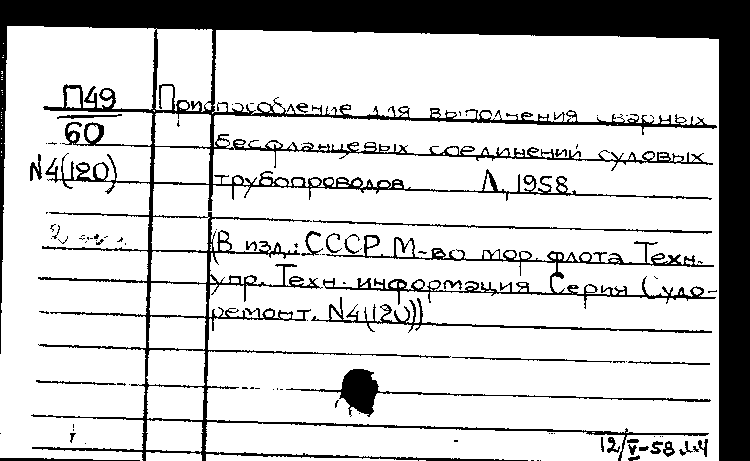 П49 Приспособление для выполнения сварных
60 бесфланцевых соединений судовых
N4(120) трубопроводов. Л, 1958.
2 экз
(В изд.: СССР. М-во мор. флота Техн.
упр. Техн. информация Серия Судо-
ремонт. N4(120))
12/V-58